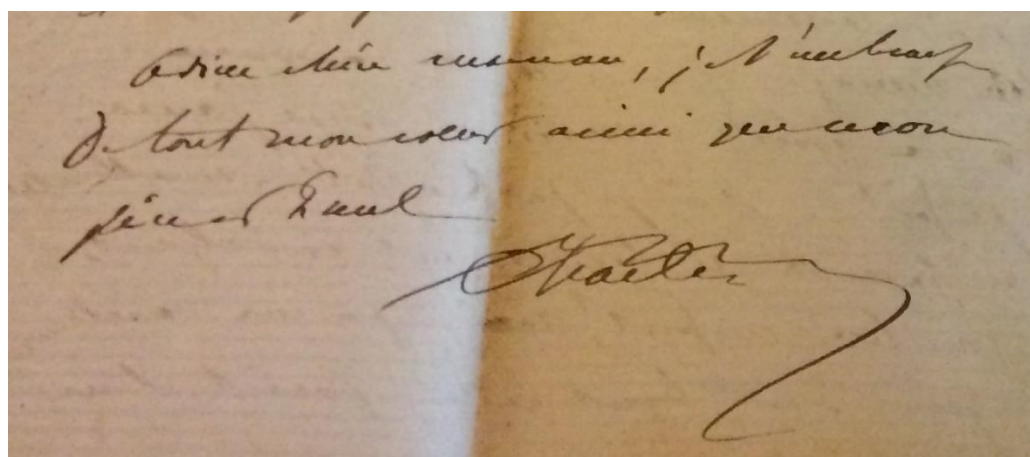 Adieu chère maman, je t'embrasse
de tout mon cœur ainsi que mon
père et Paul
Charles